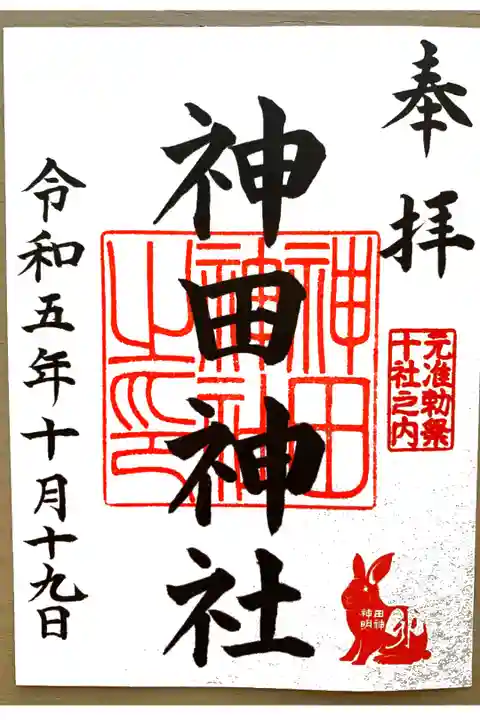 奉拝
元准勅祭
十社之内
神田神社
神田
神社
之印
田神
神明
卯
令和五年十月十九日